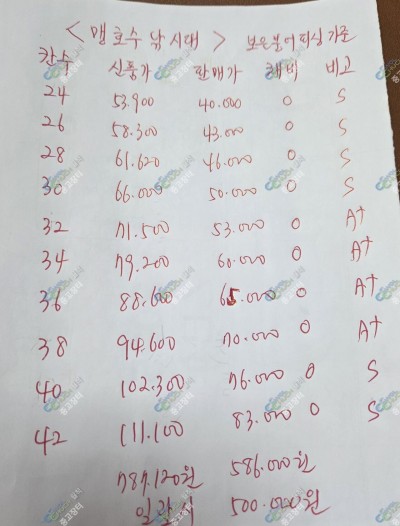 < 맬호수 낚시대 > 보은붕어피싱 기준
칸수 신품가 판매가 예비 비고
24 53.900 40.000 0 S
26 58.300 43.000 0 S
28 61.620 46.000 0 S
30 66.000 50.000 0 S
32 71.500 53.000 0 A+
34 79.200 60.000 0 A+
36 88.600 65.000 0 A+
38 94.600 70.000 0 A+
40 102.300 76.000 0 S
42 111.100 83.000 0 S
787.120원 586.000원
일괄시 500.000원